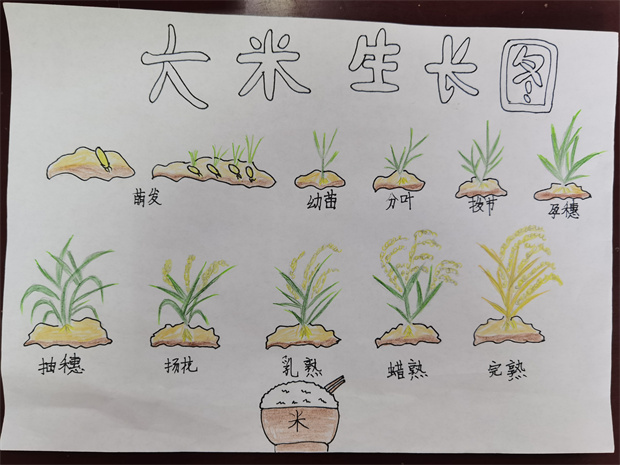 大米生长图
萌发 幼苗 分叶 拔节 孕穗
抽穗 扬花 乳熟 蜡熟 完熟
米